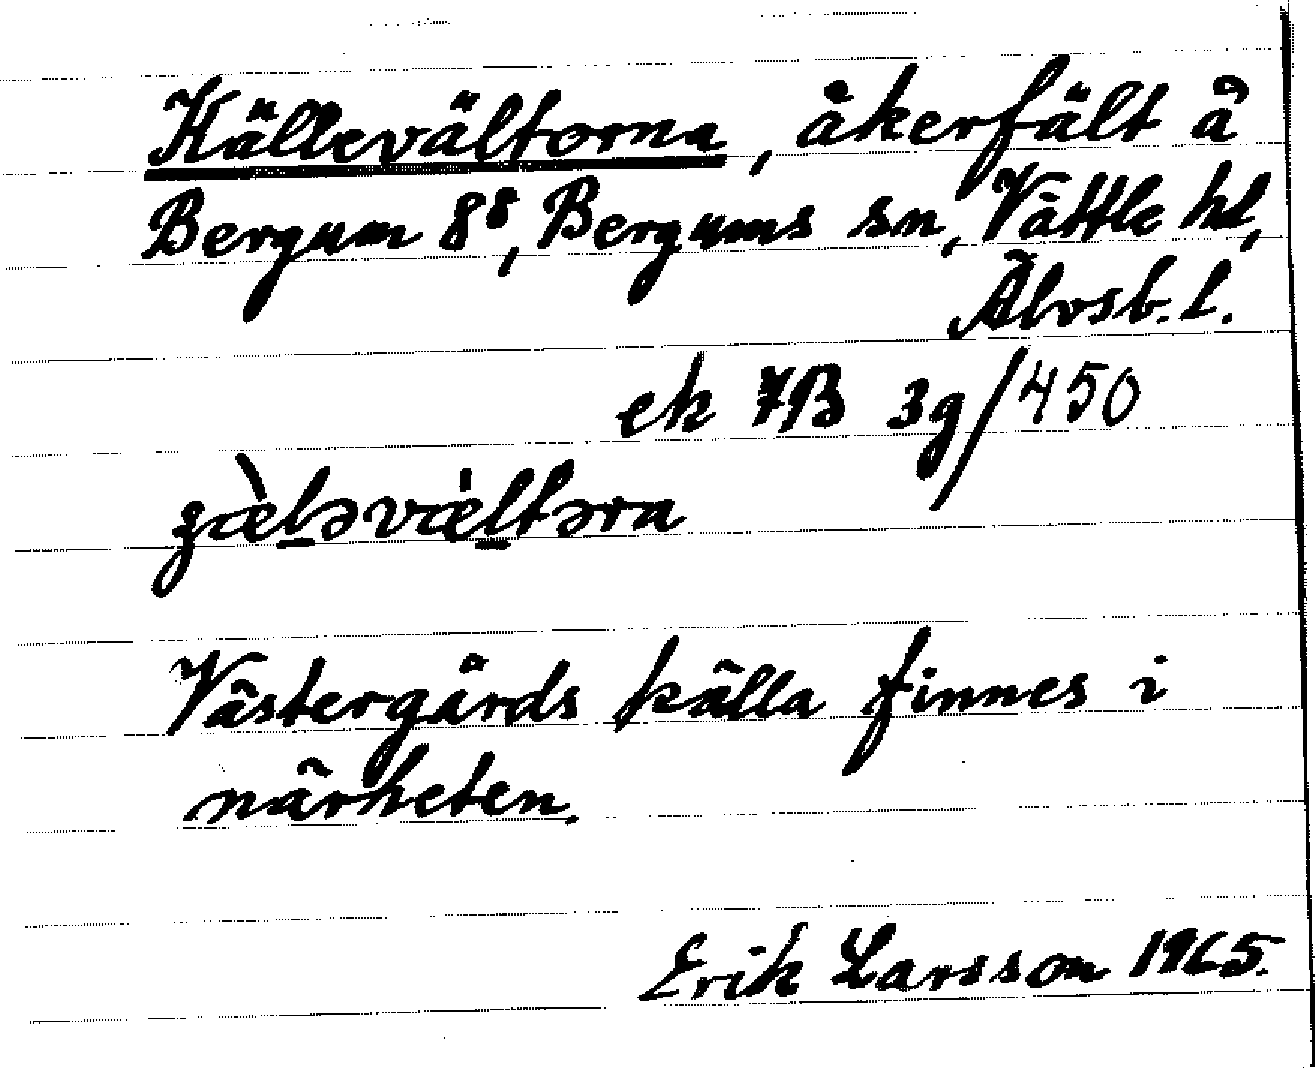 Källevältorna, åkerfält å
Bergum 8⁸, Bergums sn, Vättle hd,
Älvsb. l.
ek 7B 3g/450
Västergårds källa finnes i
närheten.
Erik Larsson 1965.